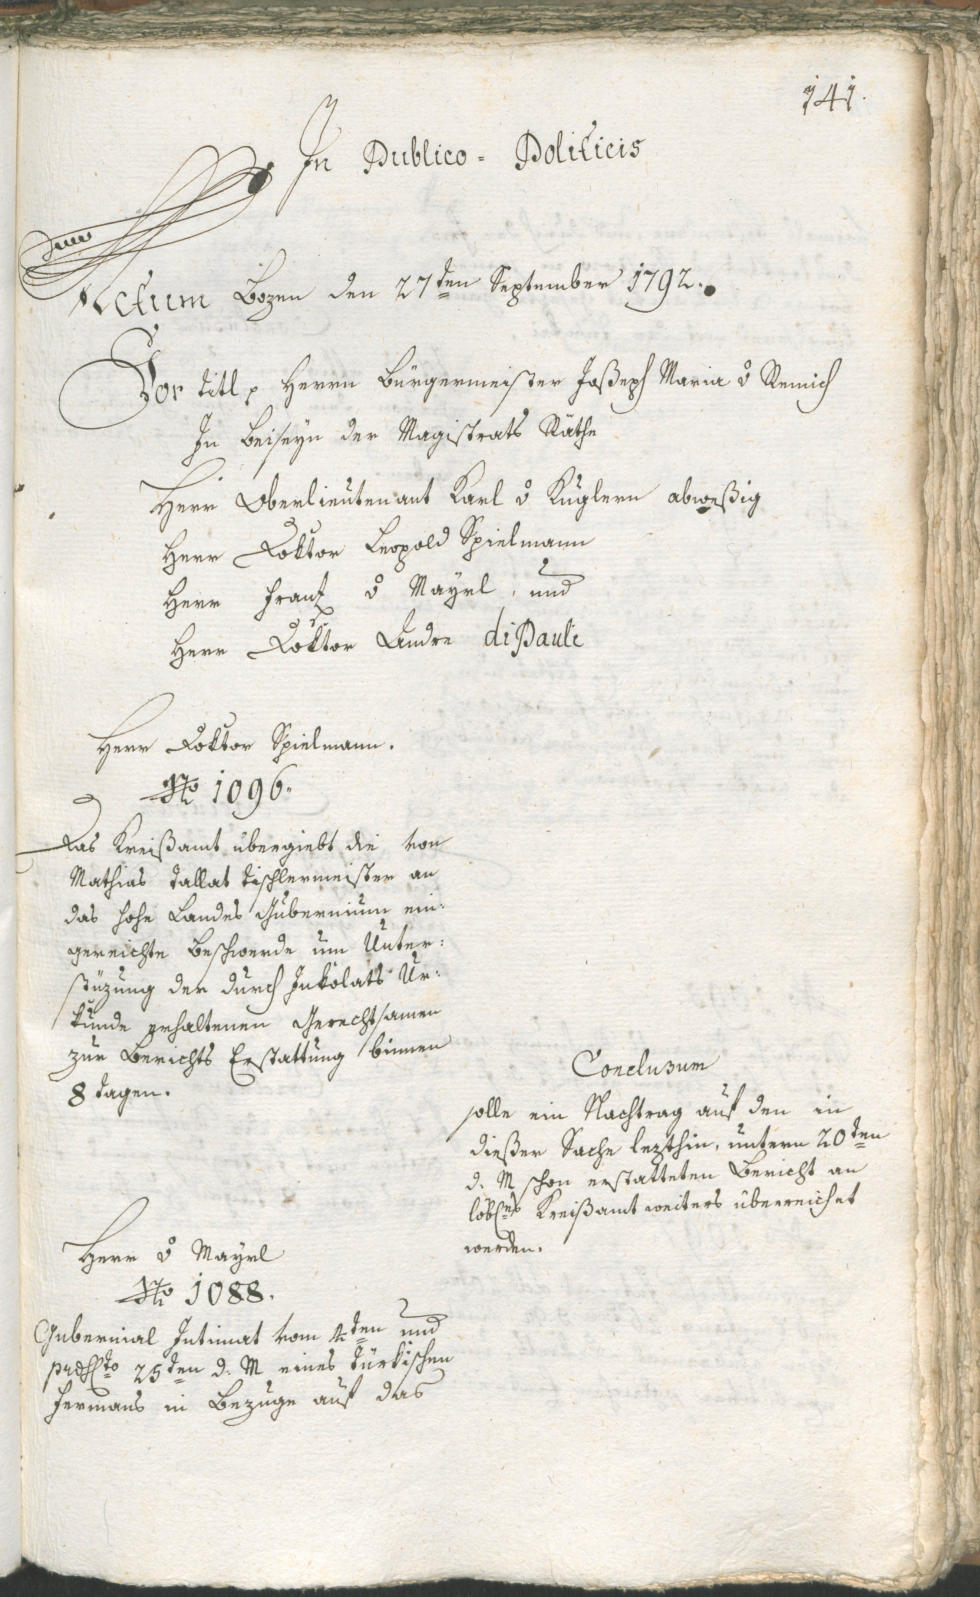 141.
In Publico-Politicis
Actum Bozen den 27ten September 1792.
Vor titl. Herrn Bürgermeister Joseph Maria v Remich
In Beiseyn der Magistrats Räthe
Herr Oberlieutenant Karl v Kuglern abweßig
Herr Doktor Leopold Spielmann
Herr Franz v Mayrl, und
Herr Doktor Andre diPauli
Herr Doktor Spielmann.
No 1096.
Das Kreißamt übergiebt die von
Mathias Tallat Tischlermeister an
das hohe Landes Gubernium ein:
gereichte Beschwerde um Unter:
stüzung der durch Inkolats Ur:
kunde erhaltenen Gerechtsamen
zur Berichts Erstattung binnen
8 tagen.
Conclusum
solle ein Nachtrag auf den in
dießer Sache lezthin, untern 20ten
d. M schon erstatteten Bericht an
löbles Kreißamt weiters überreichet
werden.
Herr v Mayrl
No 1088.
Gubernial Intimat vom 4ten und
25ten d. M eines türkischen
Fermans in Bezuge auf das